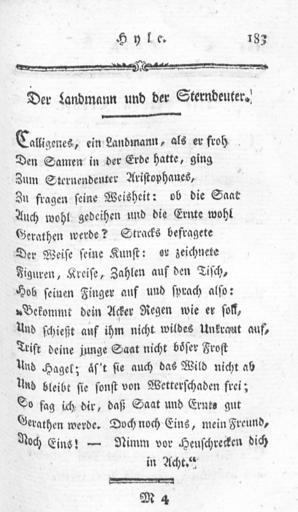 Hyle. 183
Der Landmann und der Sterndeuter.
Calligenes, ein Landmann, als er froh
Den Samen in der Erde hatte, ging
Zum Sternendeuter Aristophanes,
Zu fragen seine Weisheit: ob die Saat
Auch wohl gedeihen und die Ernte wohl
Gerathen werde? Stracks befragete
Der Weise seine Kunst: er zeichnete
Figuren, Kreise, Zahlen auf den Tisch,
Hob seinen Finger auf und sprach also:
„Bekommt dein Acker Regen wie er soll,
Und schießt auf ihm nicht wildes Unkraut auf,
Trift deine junge Saat nicht böser Frost
Und Hagel; äs't sie auch das Wild nicht ab
Und bleibt sie sonst von Wetterschaden frei;
So sag ich dir, daß Saat und Ernte gut
Gerathen werde. Doch noch Eins, mein Freund,
Noch Eins! — Nimm vor Heuschrecken dich
in Acht.“
M 4